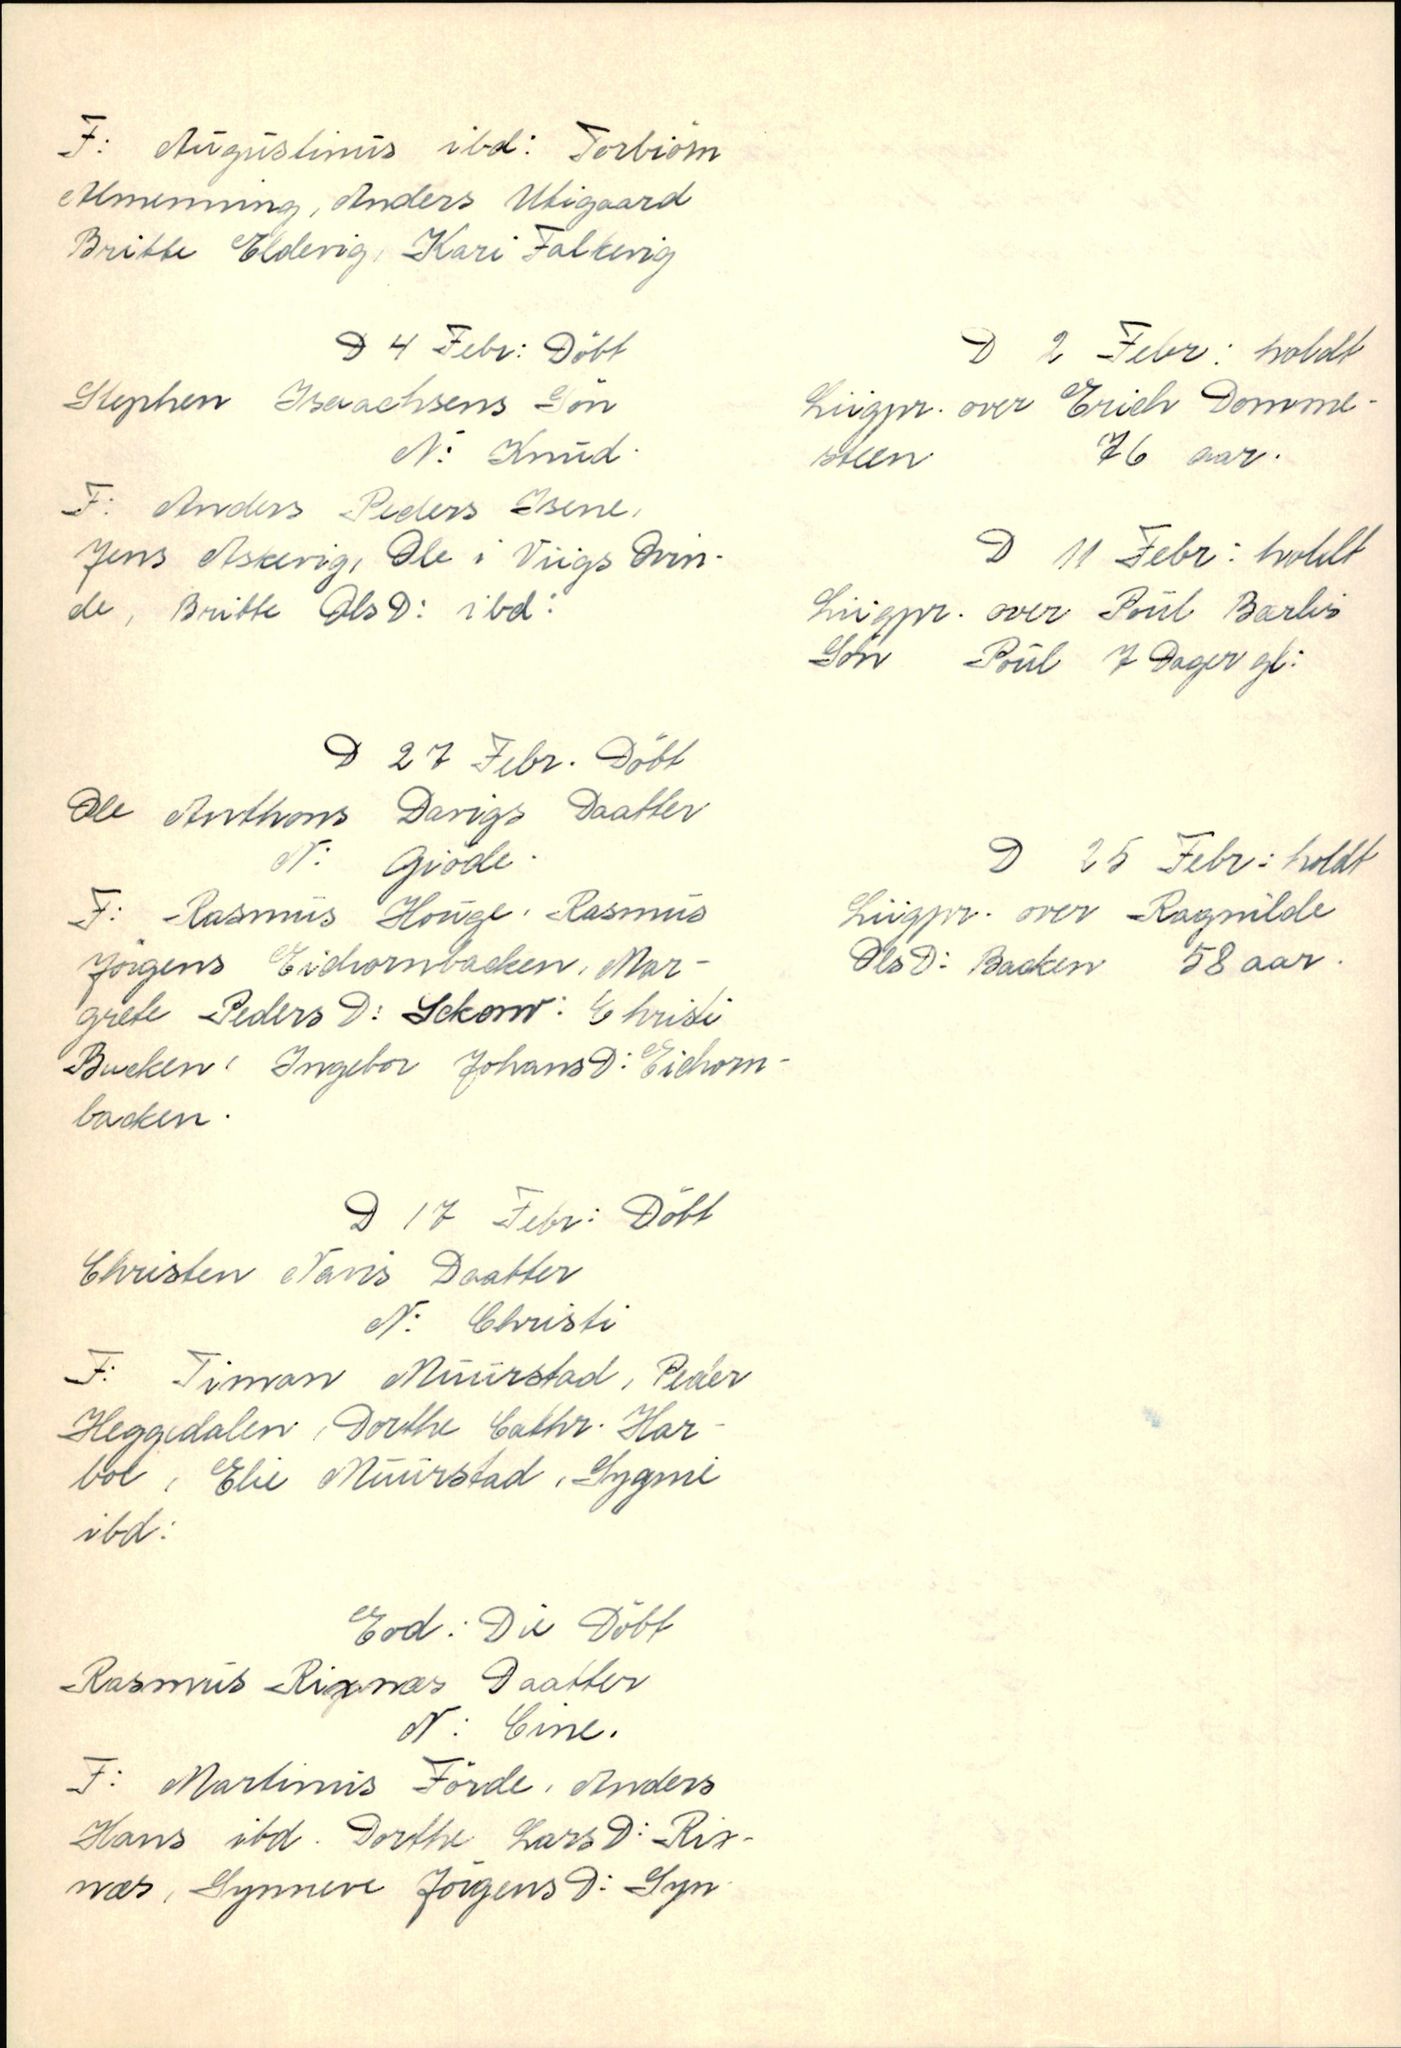 F: Augustinus ibd: Torbiörn
Almenning, Anders Utigaard
Britte Eldevig, Kari Falkevig
D 4 Febr: Döbt
Stephen Isaachsens Sön
N: Knud.
F: Anders Peders Isene,
Jens Askevig, Ole i Viigs Qvin-
de, Britte OlsD: ibd:
D 27 Febr. Döbt
Ole Anthons Davigs Daatter
N: Giöde.
F: Rasmus Houge, Rasmus
Jörgens Eichornbacken, Mar-
grete Peders D: Sckow: Christi
Backen, Ingebor JohansD: Eichorn-
backen.
D 17 Febr: Döbt
Christen Navis Daatter
N: Christi
F: Timan Muurstad, Peder
Heggedalen, Dorthe Cathr. Har-
boe, Elie Muurstad, Sygni
ibd:
Eod: Die Döbt
Rasmus Rixnæs Daatter
N: Cine.
F: Martinus Förde, Anders
Hans ibd. Dorthe LarsD: Rix-
næs, Synneve JörgensD: Syn-
D 2 Febr: holdt
Liigpr. over Erich Domme-
steen 76 aar.
D 11 Febr: holdt
Liigpr. over Poul Barlis
Sön Poul 7 Dager gl:
D 25 Febr: holdt
Liigpr. over Ragnilde
OlsD: Backen 58 aar.